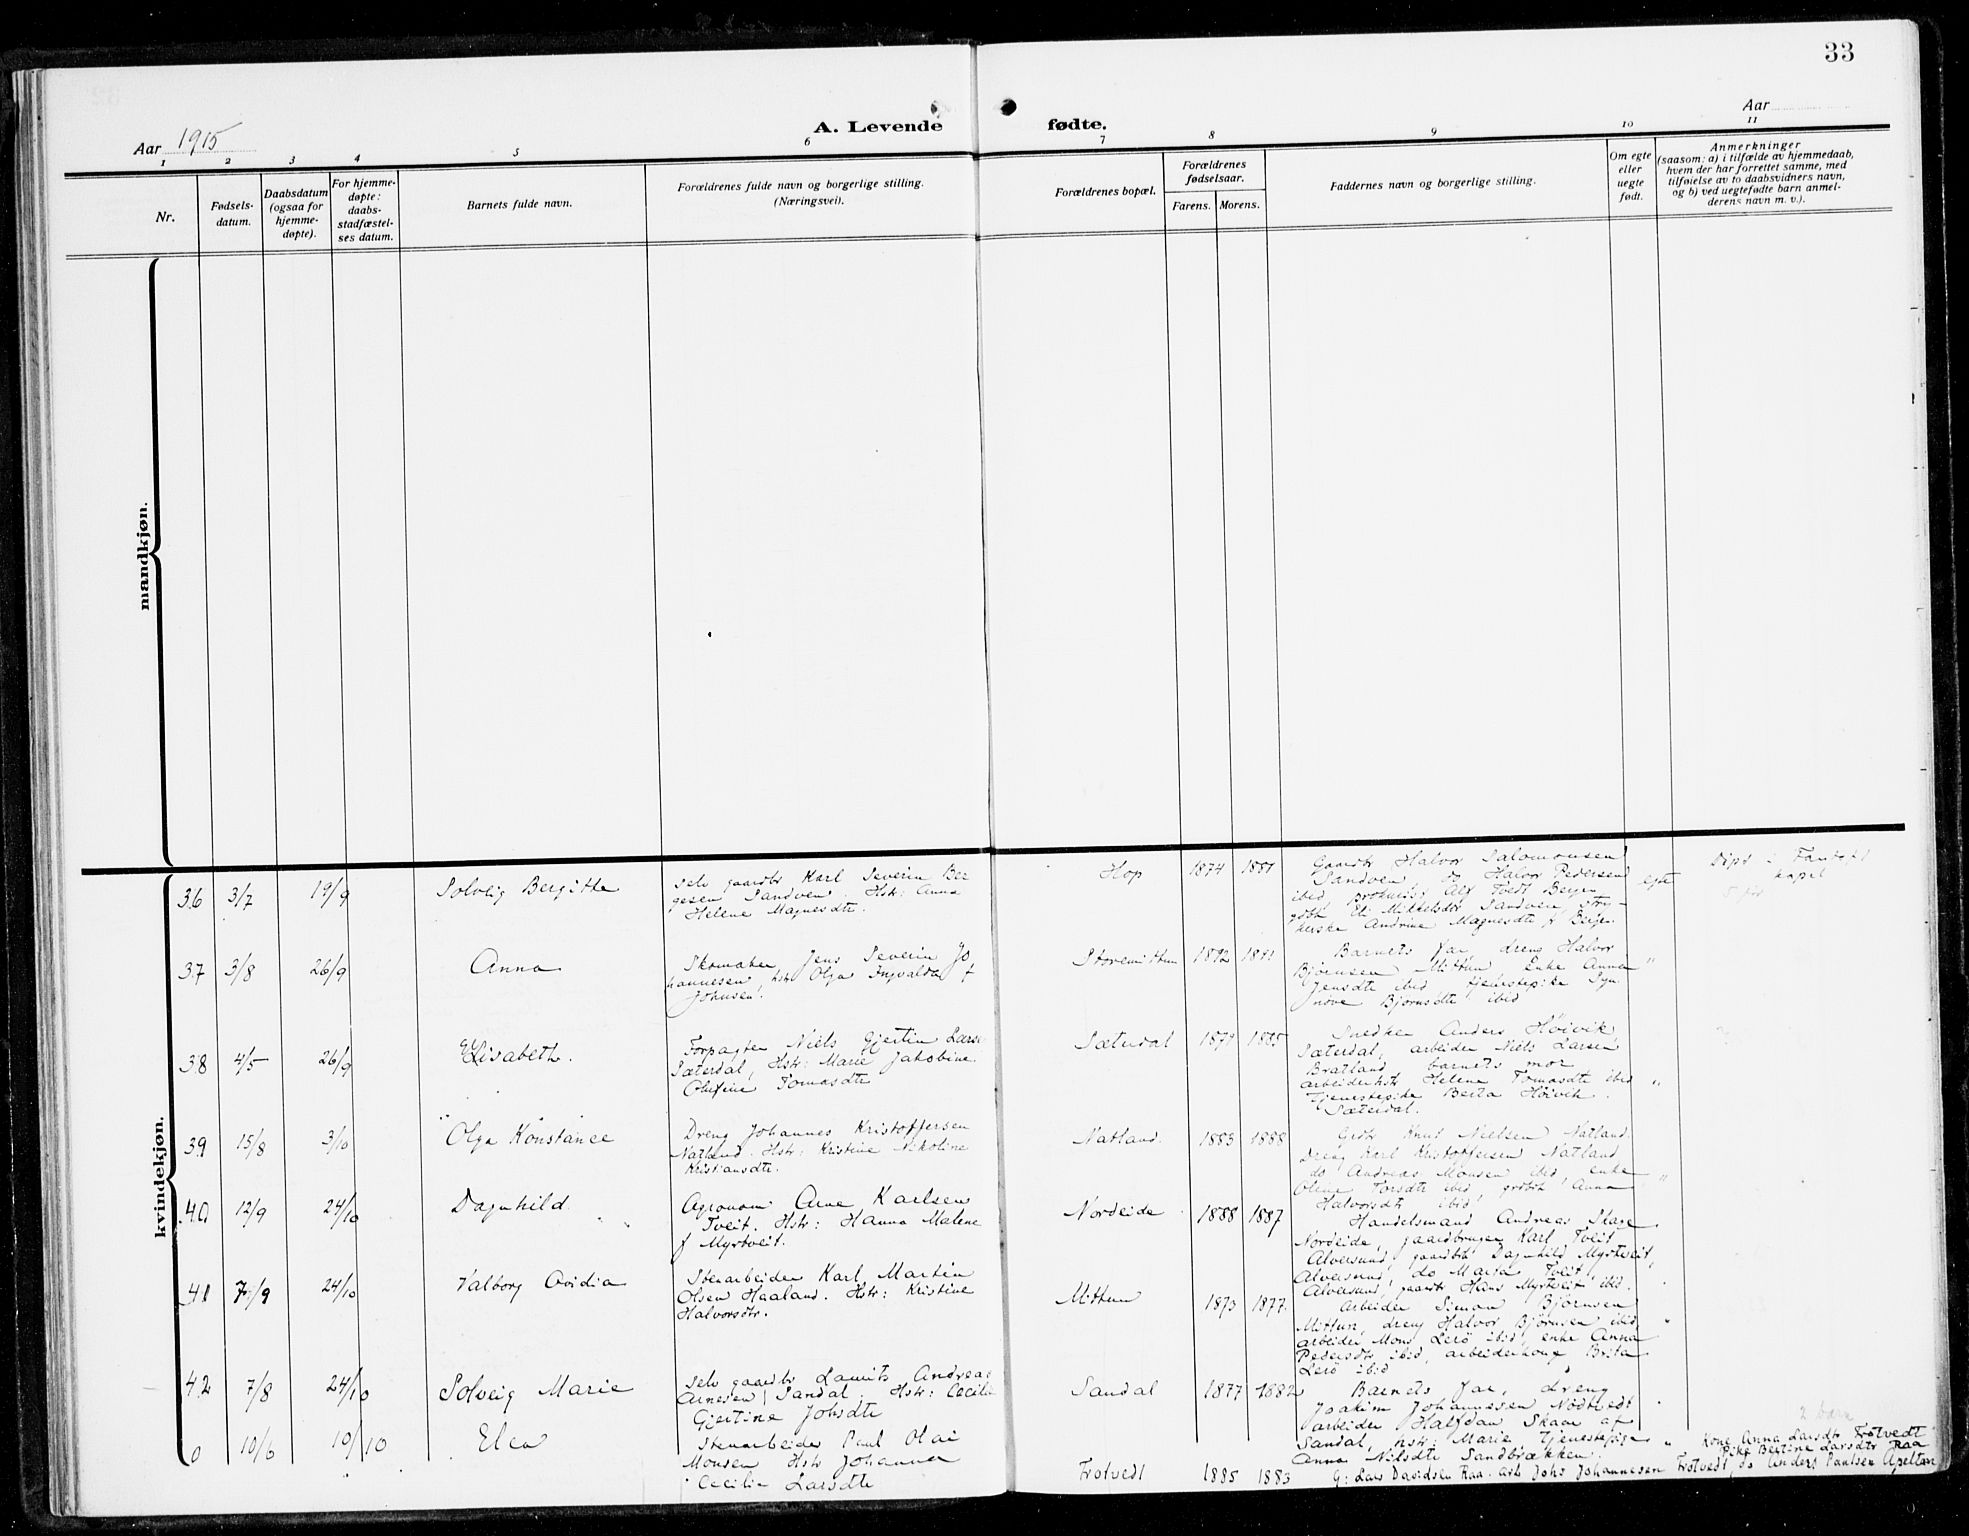 33
Aar 1915
A. Levende fødte.
Aar
1 2 3 4 5 6 7 8 9 10 11
Nr.
Fødsels-
datum.
Daabsdatum
(ogsaa for
hjemme-
døpte).
For hjemme-
døpte:
daabs-
stadfæstel-
ses datum.
Barnets fulde navn.
Forældrenes fulde navn og borgerlige stilling.
(Næringsvei).
Forældrenes bopæl.
Forældrenes
fødselsaar.
Farens. Morens.
Faddernes navn og borgerlige stilling.
Om egte
eller
uegte
født.
Anmerkninger
(saasom: a) i tilfælde av hjemmedaab,
hvem der har forrettet samme, med
tilføielse av to daabsvidners navn,
og b) ved uegtefødte barn anmel-
derens navn m. v.).
mandkjøn.
kvindekjøn.
36 3/7 19/9 Solveig Bergitte
Selv gaardbr Karl Severin Ber
gesen Sandven. Hstr: Anna
Helene Magnesdtr.
Hop 1874 1881
Gaardbr Halvor Salomonsen
Sandven do Halvor Pedersen
ibid, Alf Tvedt Bergen
gdbk Eli Mikkelsdtr Sandven, stry-
kerske Andrine Magnesdtr f Bergen
egte
Døpt i Fantoft
kapel
37 3/8 26/9 Anna
Skomaker Jens Severin Jo
hannesen, hstr Olga Ingvalda f
Johnsen.
Storemittun 1892 1891
Barnets far, dreng Halvor
Bjørnsen Mittun Enke Anna
Jensdtr ibid tjenestepike Syn
nøve Bjørnsdtr ibid
"
38 4/5 26/9 Elisabeth.
Forpagter Niels Gjertin Larse
Sæterdal, Hstr: Marie Jakobine
Olufine Tomasdtr
Sæterdal 1879 1885
Snedker Anders Høivik
Sæterdal, arbeider Niels Larsen
Bratland barnets mor
arbeiderhstr Helene Tomasdtr ibid
Tjenestepike Berta Høivik
Sæterdal.
"
39 15/8 3/10 Olga Konstance
Dreng Johannes Kristoffersen
Natland. Hstr: Kristine Nikoline
Kristiansdtr.
Natland. 1883 1888
Grdbr Knut Nielsen Natland.
Dreng Karl Kristoffersen Natland
do Andreas Monsen ibid enke
Oline Torsdtr ibid grdbk Anna
Halvorsdtr ibid
"
40 12/9 24/10 Dagnhild
Agronom Arne Karlsen
Tveit. Hstr: Hanna Malene
f Myrtveit.
Nordeide 1888 1887
Handelsmand Andreas Skage
Nordeide, gaardbruger Karl Tveit
Alversund, gaardbk Dagnhild Myrtveit,
Alversund, do Marta Tveit
Alversund, gaardbr Hans Myrtveit ibid.
41 7/9 24/10 Valborg Ovidia
Stenarbeider Karl Martin
Olsen Haaland. Hstr: Kristine
Halvorsdtr.
Mittun 1873 1877
Arbeider Simon Bjørnsen
Mittun, dreng Halvor Bjørnsen ibid,
arbeider Mons Lerø ibid, enke Anna
Pedersdtr ibid, arbeiderkone Brita
Lerø ibid
"
42 7/8 24/10 Solveig Marie
Selv gaardbr Lauritz Andreas
Arnesen Sandal. Hstr: Cecilie
Gjertine Johsdtr
Sandal 1877 1882
Barnets far, dreng
Joakim Johannesen Nødtvedt
arbeider Halfdan Skaar af
Sandal, hstr: Marie Tjenestepige
Anna Nilsdtr Sandbrækken
"
0 10/6 10/10 Elea
Stenarbeider Paul Olai
Monsen Hstr Johanna
Cecilie Larsdtr
Trotvedt 1885 1883
G: Lars Davidsen Raa arb Johs Johannesen Trotvedt, do Anders Paulsen Apeltun
2 barn
Kone Anna Larsdtr Trotvedt
Pike Bertine Larsdtr Raa